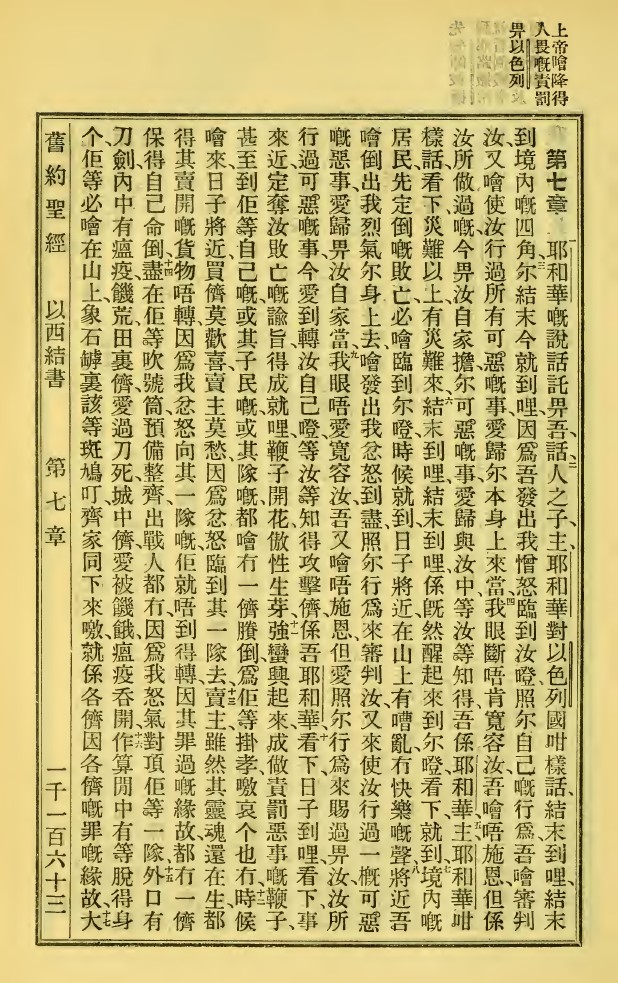 上帝噲降得
人畏嘅責罰
畀以色列
第七章 一耶和華嘅說話託畀吾話、二人之子、主耶和華對以色列國咁樣話、結末到哩、結末
到境內嘅四角、三尔結末今就到哩、因爲吾發出我憎怒臨到汝、噔照尔自己嘅行爲、吾噲審判
汝、又噲使汝行過所有可惡嘅事、愛歸尔本身上來當、四我眼斷唔肯寬容汝、吾噲唔施恩、但係
汝所做過嘅、今畀汝自家擔、尔可惡嘅事、愛歸與汝中等、汝等知得吾係耶和華、五主耶和華咁
樣話、看下、災難以上有災難來、六結末到哩、結末到哩、係旣然醒起來到尔、噔看下、就到、七境內嘅
居民、先定倒嘅敗亡、必噲臨到尔、噔時候就到、日子將近、在山上有嘈亂、冇快樂嘅聲、八將近吾
噲倒出我烈氣尔身上去、噲發出我忿怒到盡、照尔行爲來審判汝、又來使汝行過一概可惡
嘅惡事、愛歸畀汝自家當、九我眼唔愛寬容汝、吾又噲唔施恩、但愛照尔行爲來賜過畀汝、汝所
行過可惡嘅事、今愛到轉汝自己、噔等汝等知得攻擊儕、係吾耶和華、十看下、日子到哩、看下、事
來近、定奪汝敗亡嘅諭旨得成就哩、鞭子開花、傲性生芽、十一強蠻興起來、成做責罰惡事嘅鞭子、
甚至到佢等自己嘅、或其子民嘅、或其隊嘅、都噲冇一儕賸倒、爲佢等掛孝噭哀个也冇、十二時候
噲來、日子將近、買儕莫歡喜、賣主莫愁、因爲忿怒臨到其一隊去、十三賣主雖然其靈魂還在生、都
得其賣開嘅貨物唔轉、因爲我忿怒向其一隊嘅、佢就唔到得轉、因其罪過嘅緣故、都冇一儕
保得自己命倒、十四盡在佢等吹號筒、預備整齊、出戰人都冇、因爲我怒氣對項佢等一隊、十五外口有
刀劍、內中有瘟疫饑荒、田裏儕愛過刀死、城中儕愛被饑餓瘟疫吞開、十六作算閒中有等脫得身
个、佢等必噲在山上、象石罅裏該等斑鳩叮、齊家同下來噭、就係各儕因各儕嘅罪嘅緣故、十七大
舊約聖經 以西結書 第七章 一千一百六十三